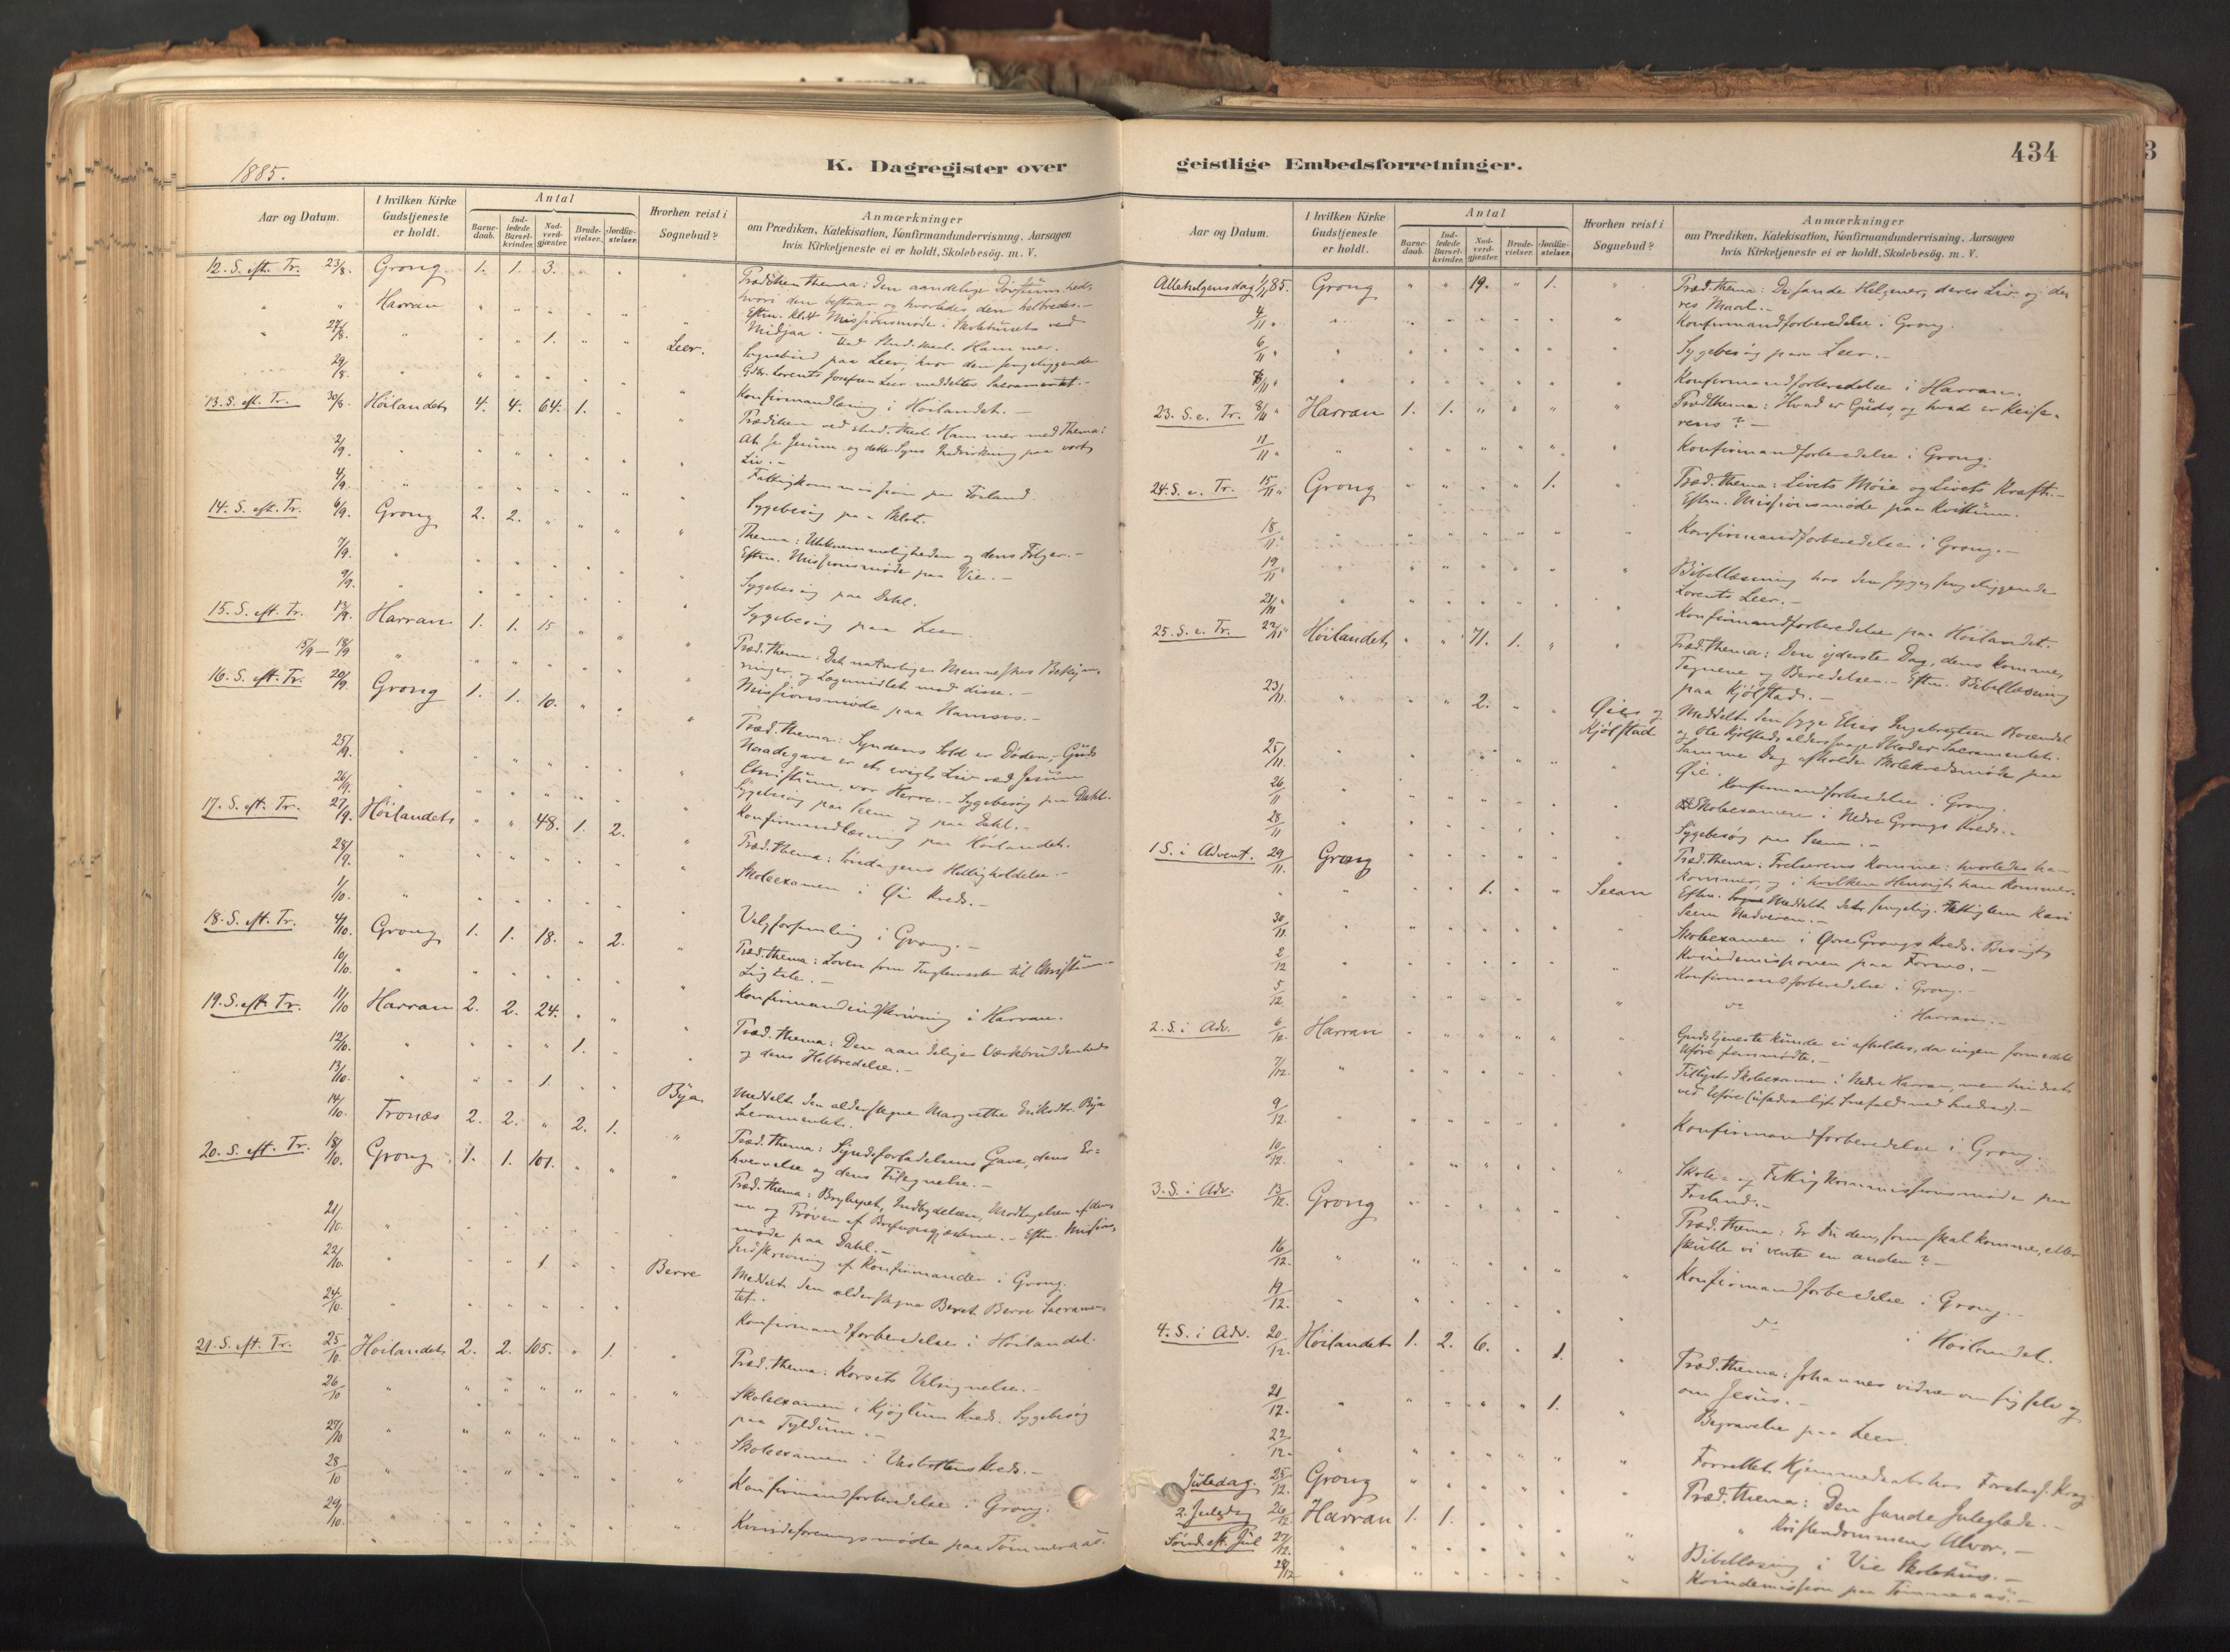 1885.
K. Dagregister over
Aar og Datum.
I hvilken Kirke Gudstjeneste er holdt.
Antal
Barnedaab.
Indledede Barselkvinder.
Nadverdgjæster.
Brudevielser.
Jordfæstelser.
Hvorhen reist i Sognebud?
Anmærkninger
om Prædiken, Katekisation, Konfirmandundervisning, Aarsagen
hvis Kirketjeneste ei er holdt, Skolebesøg. m. V.
12. S. eft. Tr. 23/8. Grong 1. 1. 3. Prædiken thema: Den aandelige Døvstumhed,
hvori den bestaar og hvorledes den helbredes.-
" " Harran Eftm. Kl. 4 Missionsmøde i Skolehuset ved
Midjaa. - Ved Stud. theol. Hammer.
27/8. 1. Leer. Sognebud paa Leer, hvor den sengeliggende
Gdbr. Lorents Josefsen Leer meddeltes Sacramentet.-
29/8. Konfirmandlæsning i Høilandet. -
13. S. eft. Tr. 30/8. Høilandet 4. 4. 64. 1. Prædiken ved stud. theol. Hammer med Thema:
At se Jesum og dette Syns Indvirkning paa vort
Liv. -
2/9. Fattigkommission paa Fosland.
4/9. Sygebesøg paa
14. S. eft. Tr. 6/9. Grong 2. 2. Thema: Utaknemmeligheden og dens Følger. -
Eftm. Missionsmøde paa Vie. -
7/9. Sygebesøg paa Dahl.
9/9. Sygebesøg paa Leer.
15. S. eft. Tr. 13/9. Harran 1. 1. 15 Præd. thema: Det naturlige Menneskes Bekymringer
og Lægemidlet mod disse. -
15/9 - 18/9 Missionsmøde paa Namsos. -
16. S. eft. Tr. 20/9. Grong 1. 1. 10. Præd. thema: Syndens Sold er Døden, Guds
Naadegave er et evigt Liv ved Jesum
Christum, vor Herre. - Sygebesøg paa Dahl.
25/9. Sygebesøg paa Seem og paa Dahl. -
26/9. Konfirmandlæsning paa Høilandet.
17. S. eft. Tr. 27/9. Høilandet 48. 1. 2. Præd. thema: Søndagens Helligholdelse. -
28/9. Skoleexamen i Øie Kreds. -
1/10. Valgforsamling i Grong. -
18. S. eft. Tr. 4/10. Grong 1. 1. 18. 2. Præd. thema: Loven som Tugtemester til Christum. -
Ligtale. -
10/10. Konfirmandindskrivning i Harran.
19. S. eft. Tr. 11/10 Harran 2. 2. 24. Præd. thema: Den aandelige Værkbrudenhed
og dens Helbredelse. -
12/10. 1.
13/10. 1. Bya Meddelt den alderstegne Margrethe Eriksdtr. Bya
Sacramentet.
14/10. Tronæs 2. 2. " 2. 1. Præd. thema: Syndsforladelsens Gave, dens Erhvervelse
og dens Tilegnelse. -
20. S. eft. Tr. 18/10. Grong 1. 1. 101. Præd. thema: Bryllupet, Indbydelsen, Modtagelsen af denne
og Prøven af Bryllupsgjæsterne. - Eftm. Missionsmøde
paa Dahl. -
21/10. Indskrivning af Konfirmander i Grong.
22/10. 1. Berre Meddelt den alderstegne Beret Berre Sacramentet.
24/10. Konfirmandforberedelse i Høilandet.
21. S. eft. Tr. 25/10. Høilandet 2. 2. 105. 1. Præd. thema: Korsets Velsignelse. -
26/10 Skoleexamen i Kjøglum Kreds. Sygebesøg
paa Tyldum. -
27/10 Skoleexamen i Kreds. -
28/10 Konfirmandforberedelse i Grong.
29/10. Kvindeforeningsmøde paa Tømmeraas.
geistlige Embedsforretninger.
434
Aar og Datum.
I hvilken Kirke Gudstjeneste er holdt.
Antal
Barnedaab.
Indledede Barselkvinder.
Nadverdgjæster.
Brudevielser.
Jordfæstelser.
Hvorhen reist i Sognebud?
Anmærkninger
om Prædiken, Katekisation, Konfirmandundervisning, Aarsagen
hvis Kirketjeneste ei er holdt, Skolebesøg. m. V.
Allehelgensdag 1/11 85. Grong " " 19. " 1. Præd. thema: De sande Helgener, deres Liv og deres
Maal. -
4/11 Konfirmandforberedelse i Grong.
6/11 Sygebesøg paa Leer. -
7/11 Konfirmandforberedelse i Harran.
23. S. e. Tr. 8/11 Harran 1. 1. Præd. thema: Hvad er Guds, og hvad er Keiserens? -
11/11 Konfirmandforberedelse i Grong.
24. S. e. Tr. 15/11 Grong 1. Præd. thema: Livets Møie og Livets Kraft. -
Eftm. Missionsmøde paa Kvittum.
18/11 Konfirmandforberedelse i Grong. -
19/11 Bibellæsning hos den syge, sengeliggende
Lorents Leer. -
21/11 Konfirmandforberedelse paa Høilandet.
25. S. e. Tr. 22/11 Høilandet 71. 1. Præd. thema: Den yderste Dag, dens Komme,
Tegnene og Beredelsen. - Eftm. Bibellæsning
paa Kjølstad. -
23/11. 2. Øie og Kjølstad Meddelt den syge Elias Ingebrigtsen Rosendal
og Ole Kjølstads alderssvage Moder Sacramentet.
Samme Dag afholdt Skolekredsmøde paa
Øie.
25/11. Konfirmandforberedelse i Grong.
26/11 Skoleexamen i Nedre Grongs Kreds. -
28/11 Sygebesøg paa Seem. -
1 S. i Advent. 29/11. Grong Præd. thema: Frelserens Komme: hvorledes han
kommer, og i hvilken Hensigt han kommer.
1. Seem Eftm. Meddelt den sengelig. Fattiglem Kari
Seem Nadveren. -
30/11. Skoleexamen i Øvre Grongs Kreds. Besøgt
Kvindemissionen paa Formo. -
2/12 Konfirmandforberedelse i Grong. -
5/12 do i Harran. -
2. S. i Adv. 6/12. Harran Gudstjeneste kunde ei afholdes, da ingen formedelst
Uføre fremmødte. -
7/12. Tillyst Skoleexamen i Nedre Harran, men hindret
ved Uføre (usædvanligt Snefald med Snedrev). -
9/12. Konfirmandforberedelse i Grong.
10/12. Skole- og Fattigkommissionsmøde paa
Fosland. -
3. S. i Adv. 13/12. Grong Præd. thema: Er du den, som skal komme, eller
skulle vi vente en anden? -
16/12. Konfirmandforberedelse i Grong. -
19/12. do i Høilandet.
4. S. i Adv. 20/12. Høilandet 1. 2. 6. 1. Præd. thema: Johannes vidner om sig selv og
om Jesus. -
21/12. 1. Begravelse paa Leer.
22/12. Forrettet Hjemmedaab hos
Juledag. 25/12. Grong Præd. thema: Den sande Juleglæde. -
2. Juledag 26/12. Harran 1. 1. " Kristendommens Alvor. -
Sønd. eft. Jul 27/12. Bibellæsning i Vie Skolehus. -
28/12 Kvindemission paa Tømmeraas. -